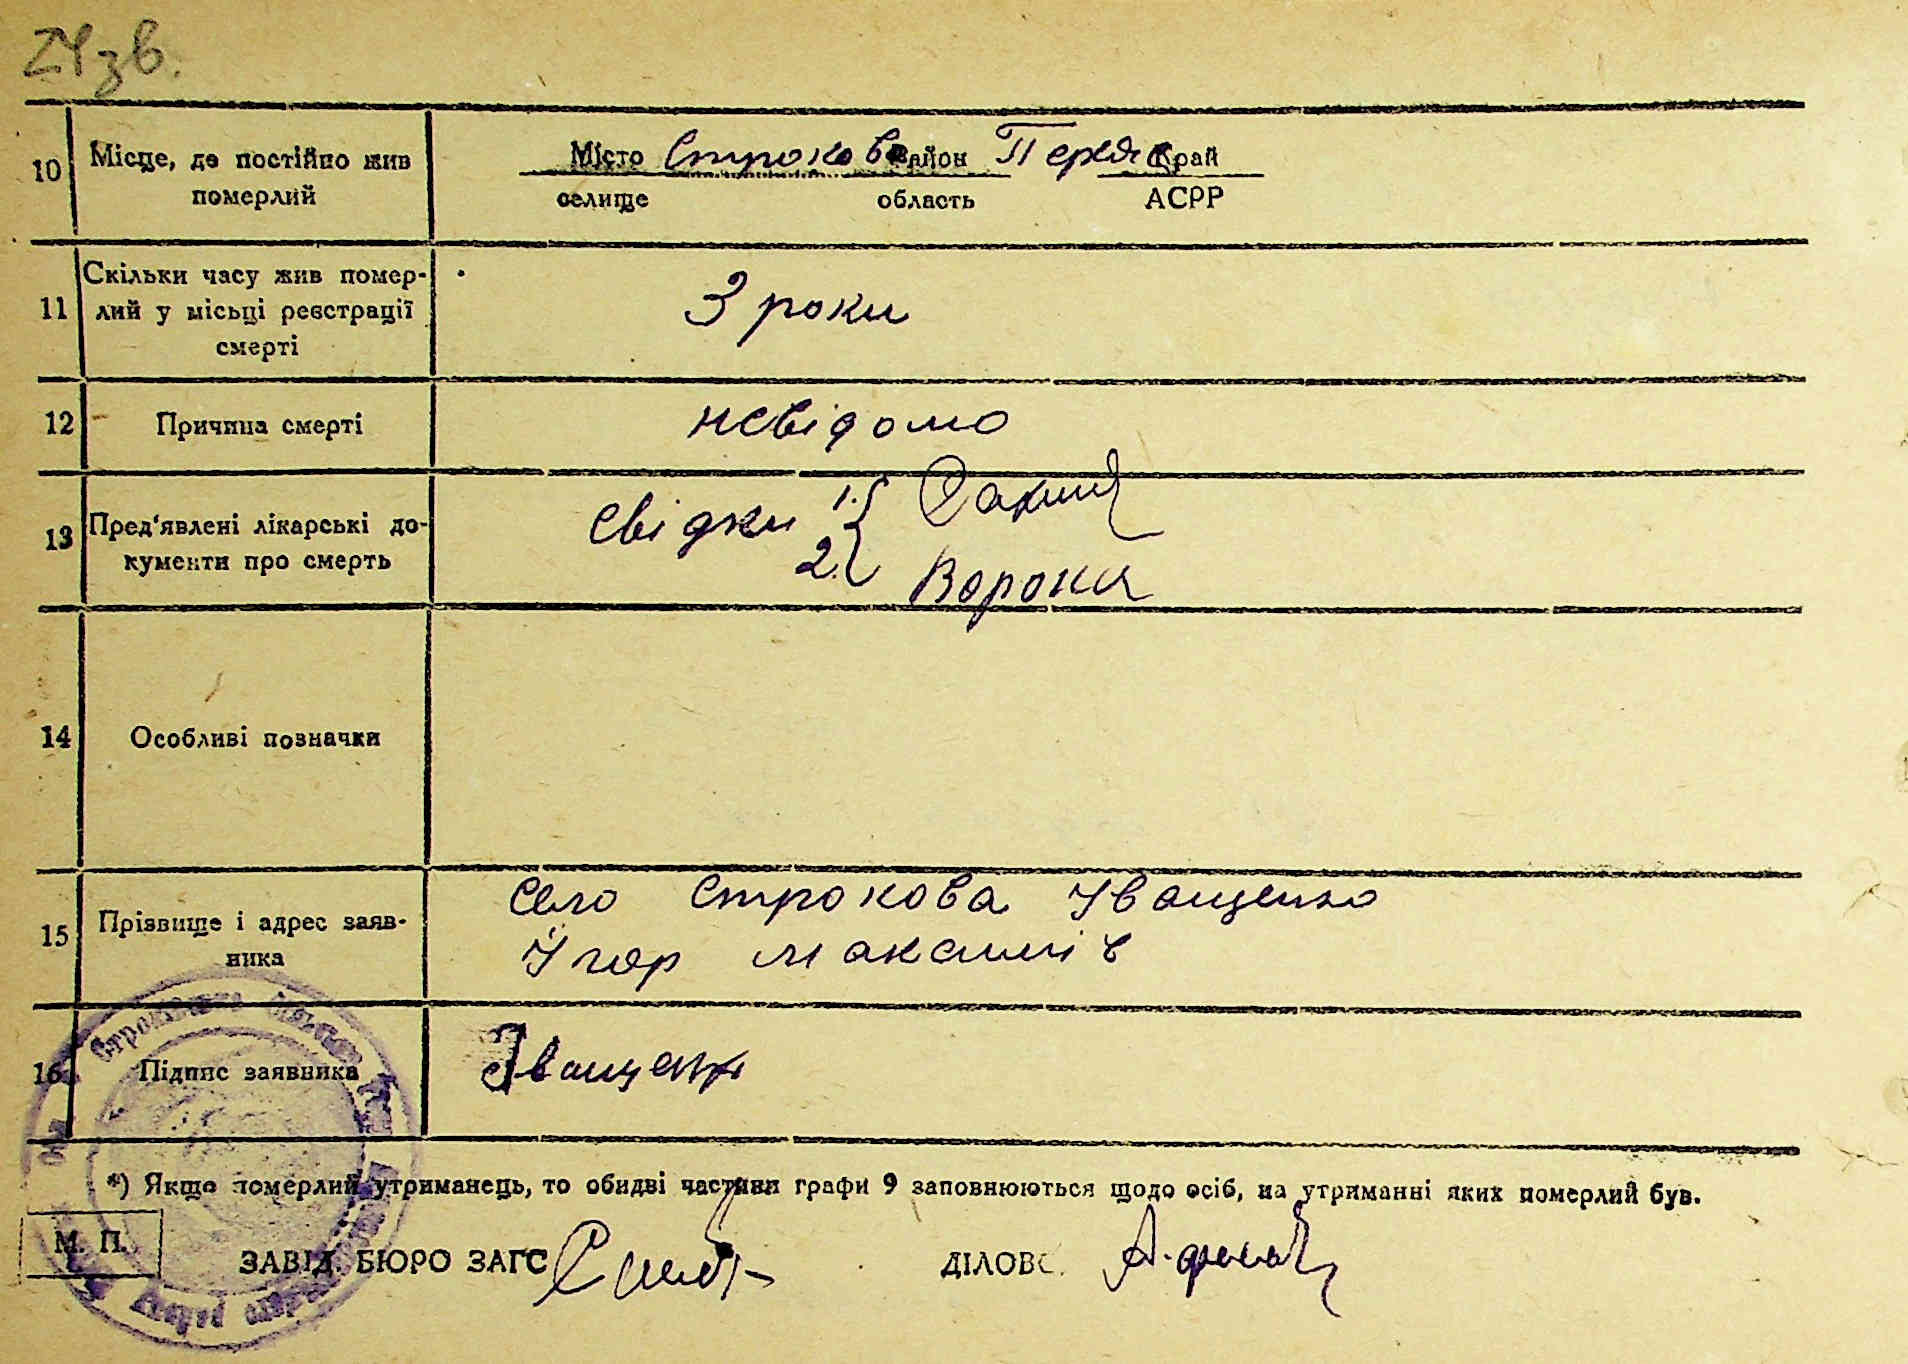 24зв.
10 Місце, де постійно жив
померлий
Місто Строкова район Переяс край
селище область АСРР
11 Скільки часу жив помер-
лий у місьці реєстрації
смерті
3 роки
12 Причина смерті
невідомо
13 Пред'явлені лікарські до-
кументи про смерть
Свідки 1.
2. Ворона
14 Особливі позначки
15 Прізвище і адрес заяв-
ника
Село Строкова Іващенко
Ігор Максимів
16 Підпис заявника
Іващенк
*) Якщо померлий утриманець, то обидві частини графи 9 заповнюються щодо осіб, на утриманні яких померлий був.
М. П.
ЗАВІД. БЮРО ЗАГС
ДІЛОВ